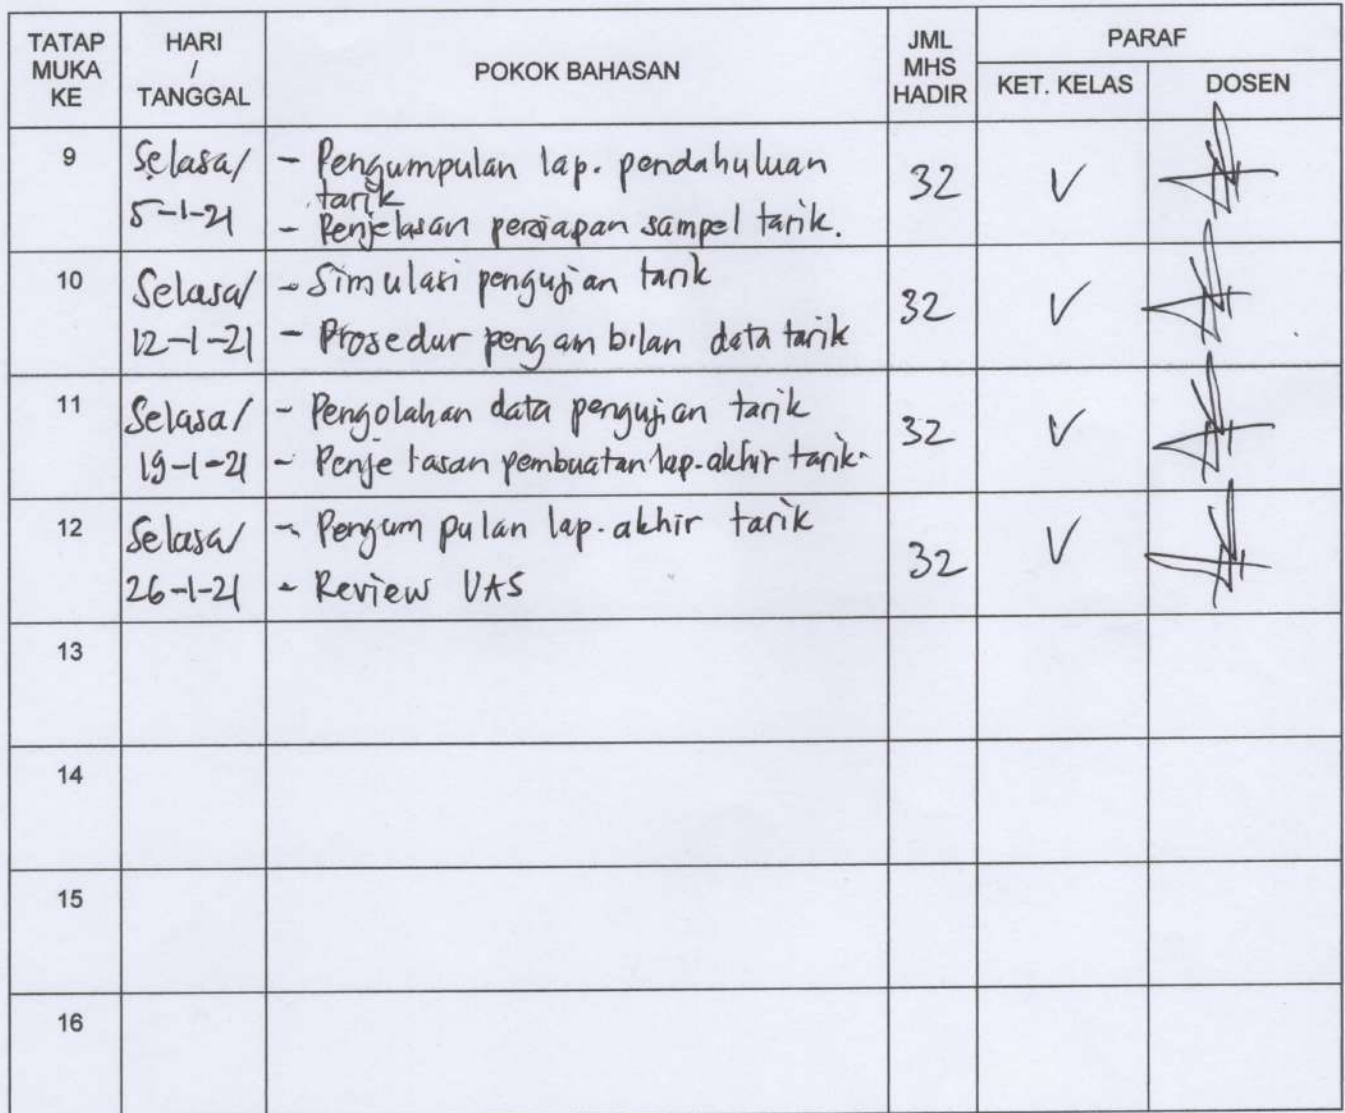 TATAP MUKA KE
HARI / TANGGAL
POKOK BAHASAN
JML MHS HADIR
PARAF
KET. KELAS
DOSEN
9
Selasa/
5-1-21
- Pengumpulan lap. pendahuluan
tarik
- Penjelasan persiapan sampel tarik.
32
V
10
Selasa/
12-1-21
- Simulasi pengujian tarik
- Prosedur pengambilan data tarik
32
V
11
Selasa/
19-1-21
- Pengolahan data pengujian tarik
- Penjelasan pembuatan lap. akhir tarik.
32
V
12
Selasa/
26-1-21
- Pengumpulan lap. akhir tarik
- Review UAS
32
V
13
14
15
16